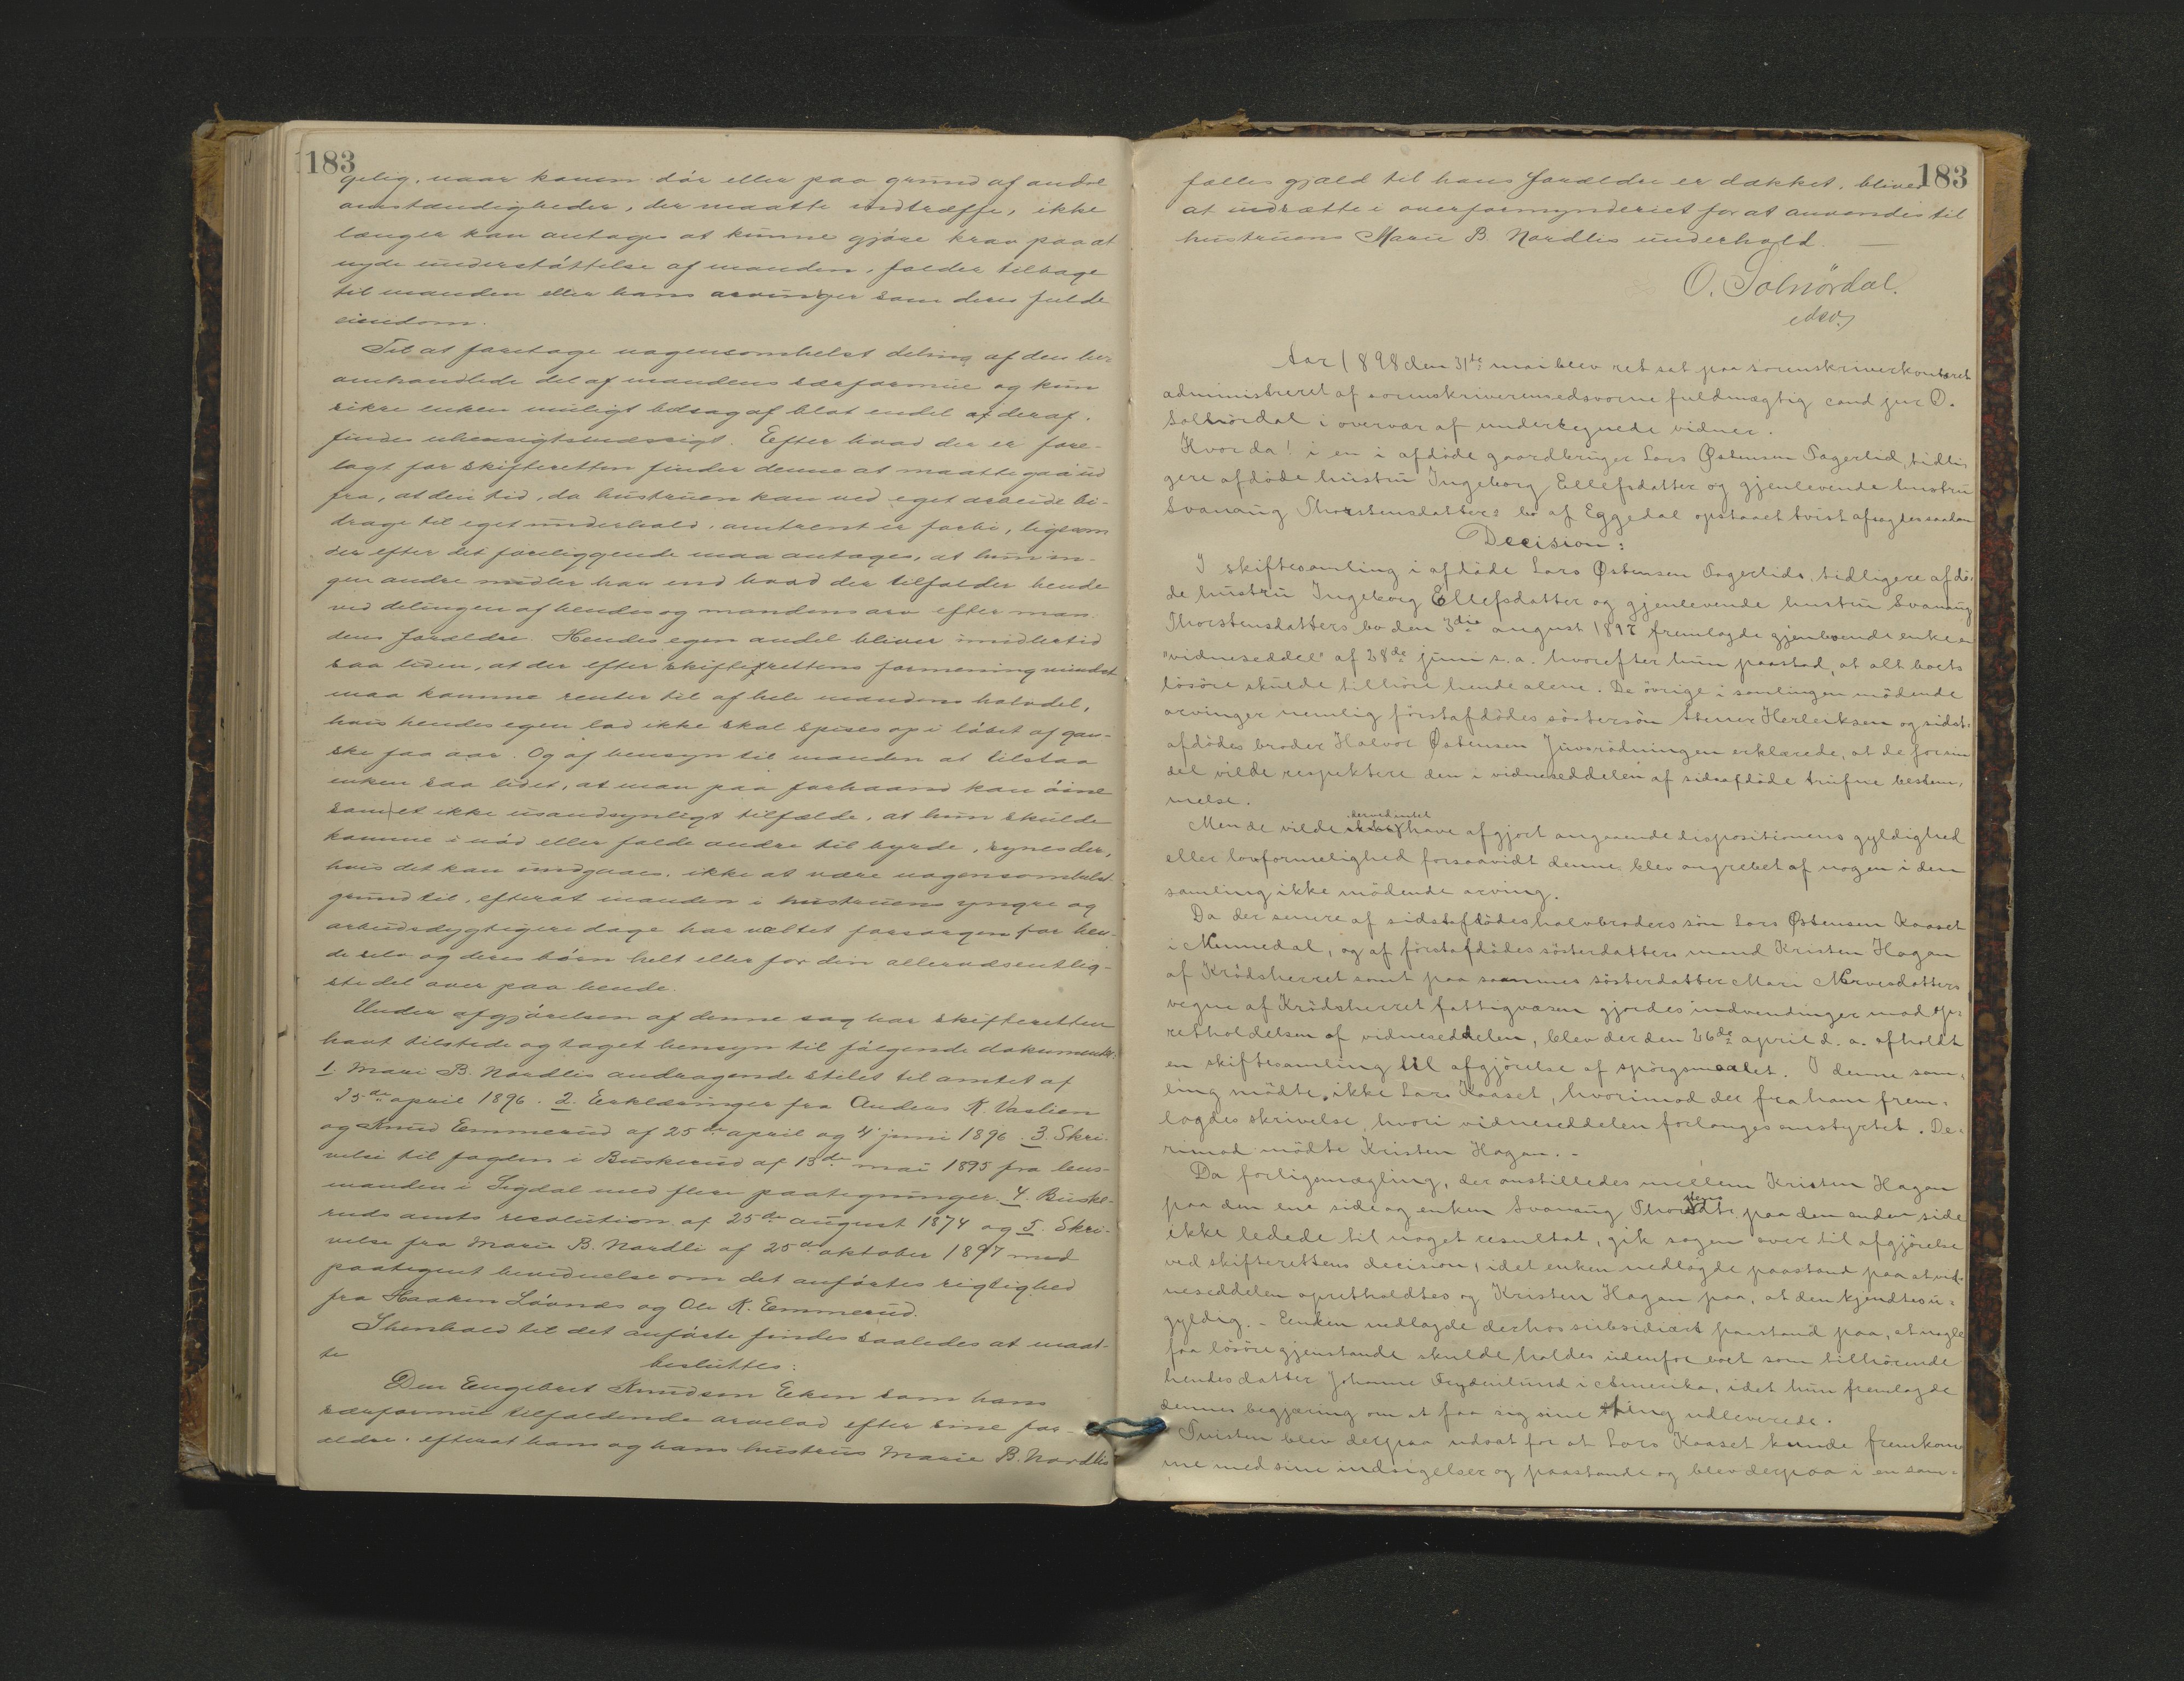 183
gelig, naar konen dör eller paa grund af andre
omstændigheder, der maatte indtræffe, ikke
længer kan antages at kunne gjöre krav paa at
nyde understöttelse af manden, falder tilbage
til manden eller hans arvinger som deres fulde
eiendom.
Til at foretage nogensomhelst deling af den her
omhandlede del af mandens særformue og kun
sikre enken muligt bidrag af blot endel af deraf,
findes uhensigtsmæssigt. Efter hvad der er fore-
lagt for skifteretten finder denne at maatte gaa ud
fra, at den tid, da hustruen kan ved eget arbeide bi-
drage til eget underhold, omtrent er forbi, ligesom
der efter det foreliggende maa antages, at hun in-
gen andre midler har end hvad der tilfalder hende
ved delingen af hendes og mandens arv efter man-
dens forældre. Hendes egen andel bliver imidlertid
saa liden, at der efter skifterettens formening mindst
maa komme renter til af hele mandens halvdel,
hvis hendes egen lod ikke skal spises op i löbet af gan-
ske faa aar. Og af hensyn til manden at tilstaa
enken saa lidet, at man paa forhaand kan öine
som et ikke usandsynligt tilfælde, at hun skulde
komme i nöd eller falde andre til byrde, synes der,
hvis det kan undgaaes, ikke at være nogensomhelst
grund til, efterat manden i hustruens yngre og
arbeidsdygtigere dage har væltet forsorgen for hen-
de selv og deres börn helt eller for den allervæsentlig-
ste del over paa hende.
Under afgjörelsen af denne sag har skifteretten
havt tilstede og taget hensyn til fölgende dokumenter:
1 Mari B. Nordlis andragende stilet til amtet af
25de april 1896. 2. Erklæringer fra Anders K. Vaslien
og Knud Emmerud af 25de april og 4 juni 1896. 3. Skri-
velse til fogden i Buskerud af 13de mai 1895 fra lens-
manden i Sigdal med flere paategninger. 4. Buske-
ruds amts resolution af 25de august 1874 og 5. Skri-
velse fra Marie B. Nordli af 25de oktober 1897 med
paategnet bevidnelse om det anförtes rigtighed
fra Haaken Lövnes og Ole K. Emmerud.
I henhold til det anförte findes saaledes at maat-
te
besluttes:
Den Engebret Knudsen Eken som hans
særformue tilfaldende arvelod efter sine for-
ældre, efterat hans og hans hustrus Marie B. Nordlis
183
fælles gjæld til hans forældre er dækket, bliver
at indsætte i overformynderiet for at anvendes til
hustruens Marie B. Nordlis underhold. —
O. Solnördal.
edsv.
Aar 1898 den 31te mai blev ret sat paa sorenskriverkontoret
administreret af sorenskriverens edsvorne fuldmægtig cand jur O.
Solnördal i overvær af undertegnede vidner.
Hvorda! i en i afdöde gaardbruger Lars Østensen Tagerlid, tidli-
gere afdöde hustru Ingeborg Ellefsdatter og gjenlevende hustru
Svanaug Thorstensdatters bo af Eggedal opstaaet tvist afsagdes saadan
Decision:
I skiftesamling i afdöde Lars Østensen Tagerlids, tidligere afdö-
de hustru Ingeborg Ellefsdatter og gjenlevende hustru Svanaug
Thorstensdatters bo den 3die august 1897 fremlagde gjenlevende enke en
"vidneseddel" af 28de juni s. a. hvorefter hun paastod, at alt boets
lösöre skulde tilhöre hende alene. De övrige i samlingen mödende
arvinger nemlig förstafdödes söstersön Stener Herleiksen og sidst-
afdödes broder Halvor Østensen Juvsrödningen erklærede, at de for sin
del vilde respektere den i vidneseddelen af sidstafdöde trufne bestem-
melse.
dervedintet
Men de vilde have afgjort angaaende dispositionens gyldighed
eller lovformelighed forsaavidt denne blev angrebet af nogen i den
samling ikke mödende arving.
Da der senere af sidstafdödes halvbroders sön Lars Østensen Kaaset
i Numedal, og af förstafdödes sösterdatters mand Kristen Hagan
af Krödsherret samt paa sammes sösterdatter Mari Nervesdatters
vegne af Krödsherret fattigvæsen gjordes indvendinger mod op-
retholdelsen af vidneseddelen, blev der den 26de april d. a. afholdt
en skiftesamling til afgjörelse af spörgsmaalet. I denne sam-
ling mödte ikke Lars Kaaset, hvorimod der fra ham frem-
lagdes skrivelse, hvori vidneseddelen forlanges omstyrtet. De-
rimod mödte Kristen Hagan. -
Da forligsmægling, der anstilledes mellem Kristen Hagan
paa den ene side og enken Svanaug Thorstensdtr. paa den anden side
ikke ledede til noget resultat, gik sagen over til afgjörelse
ved skifterettens decision, idet enken nedlagde paastand paa at vid-
neseddelen opretholdtes og Kristen Hagan paa, at den kjendtes u-
gyldig. - Enken nedlagde derhos subsidiært paastand paa, at nogle
faa lösöregjenstande skulde holdes udenfor boet som tilhörende
hendes datter Johanne Frydenlund i Amerika, idet hun fremlagde
dennes begjæring om at faa sig sine ting udleverede.
Tvisten blev derpaa udsat for at Lars Kaaset kunde fremkom-
me med sine indsigelser og paastande og blev derpaa i en sam-